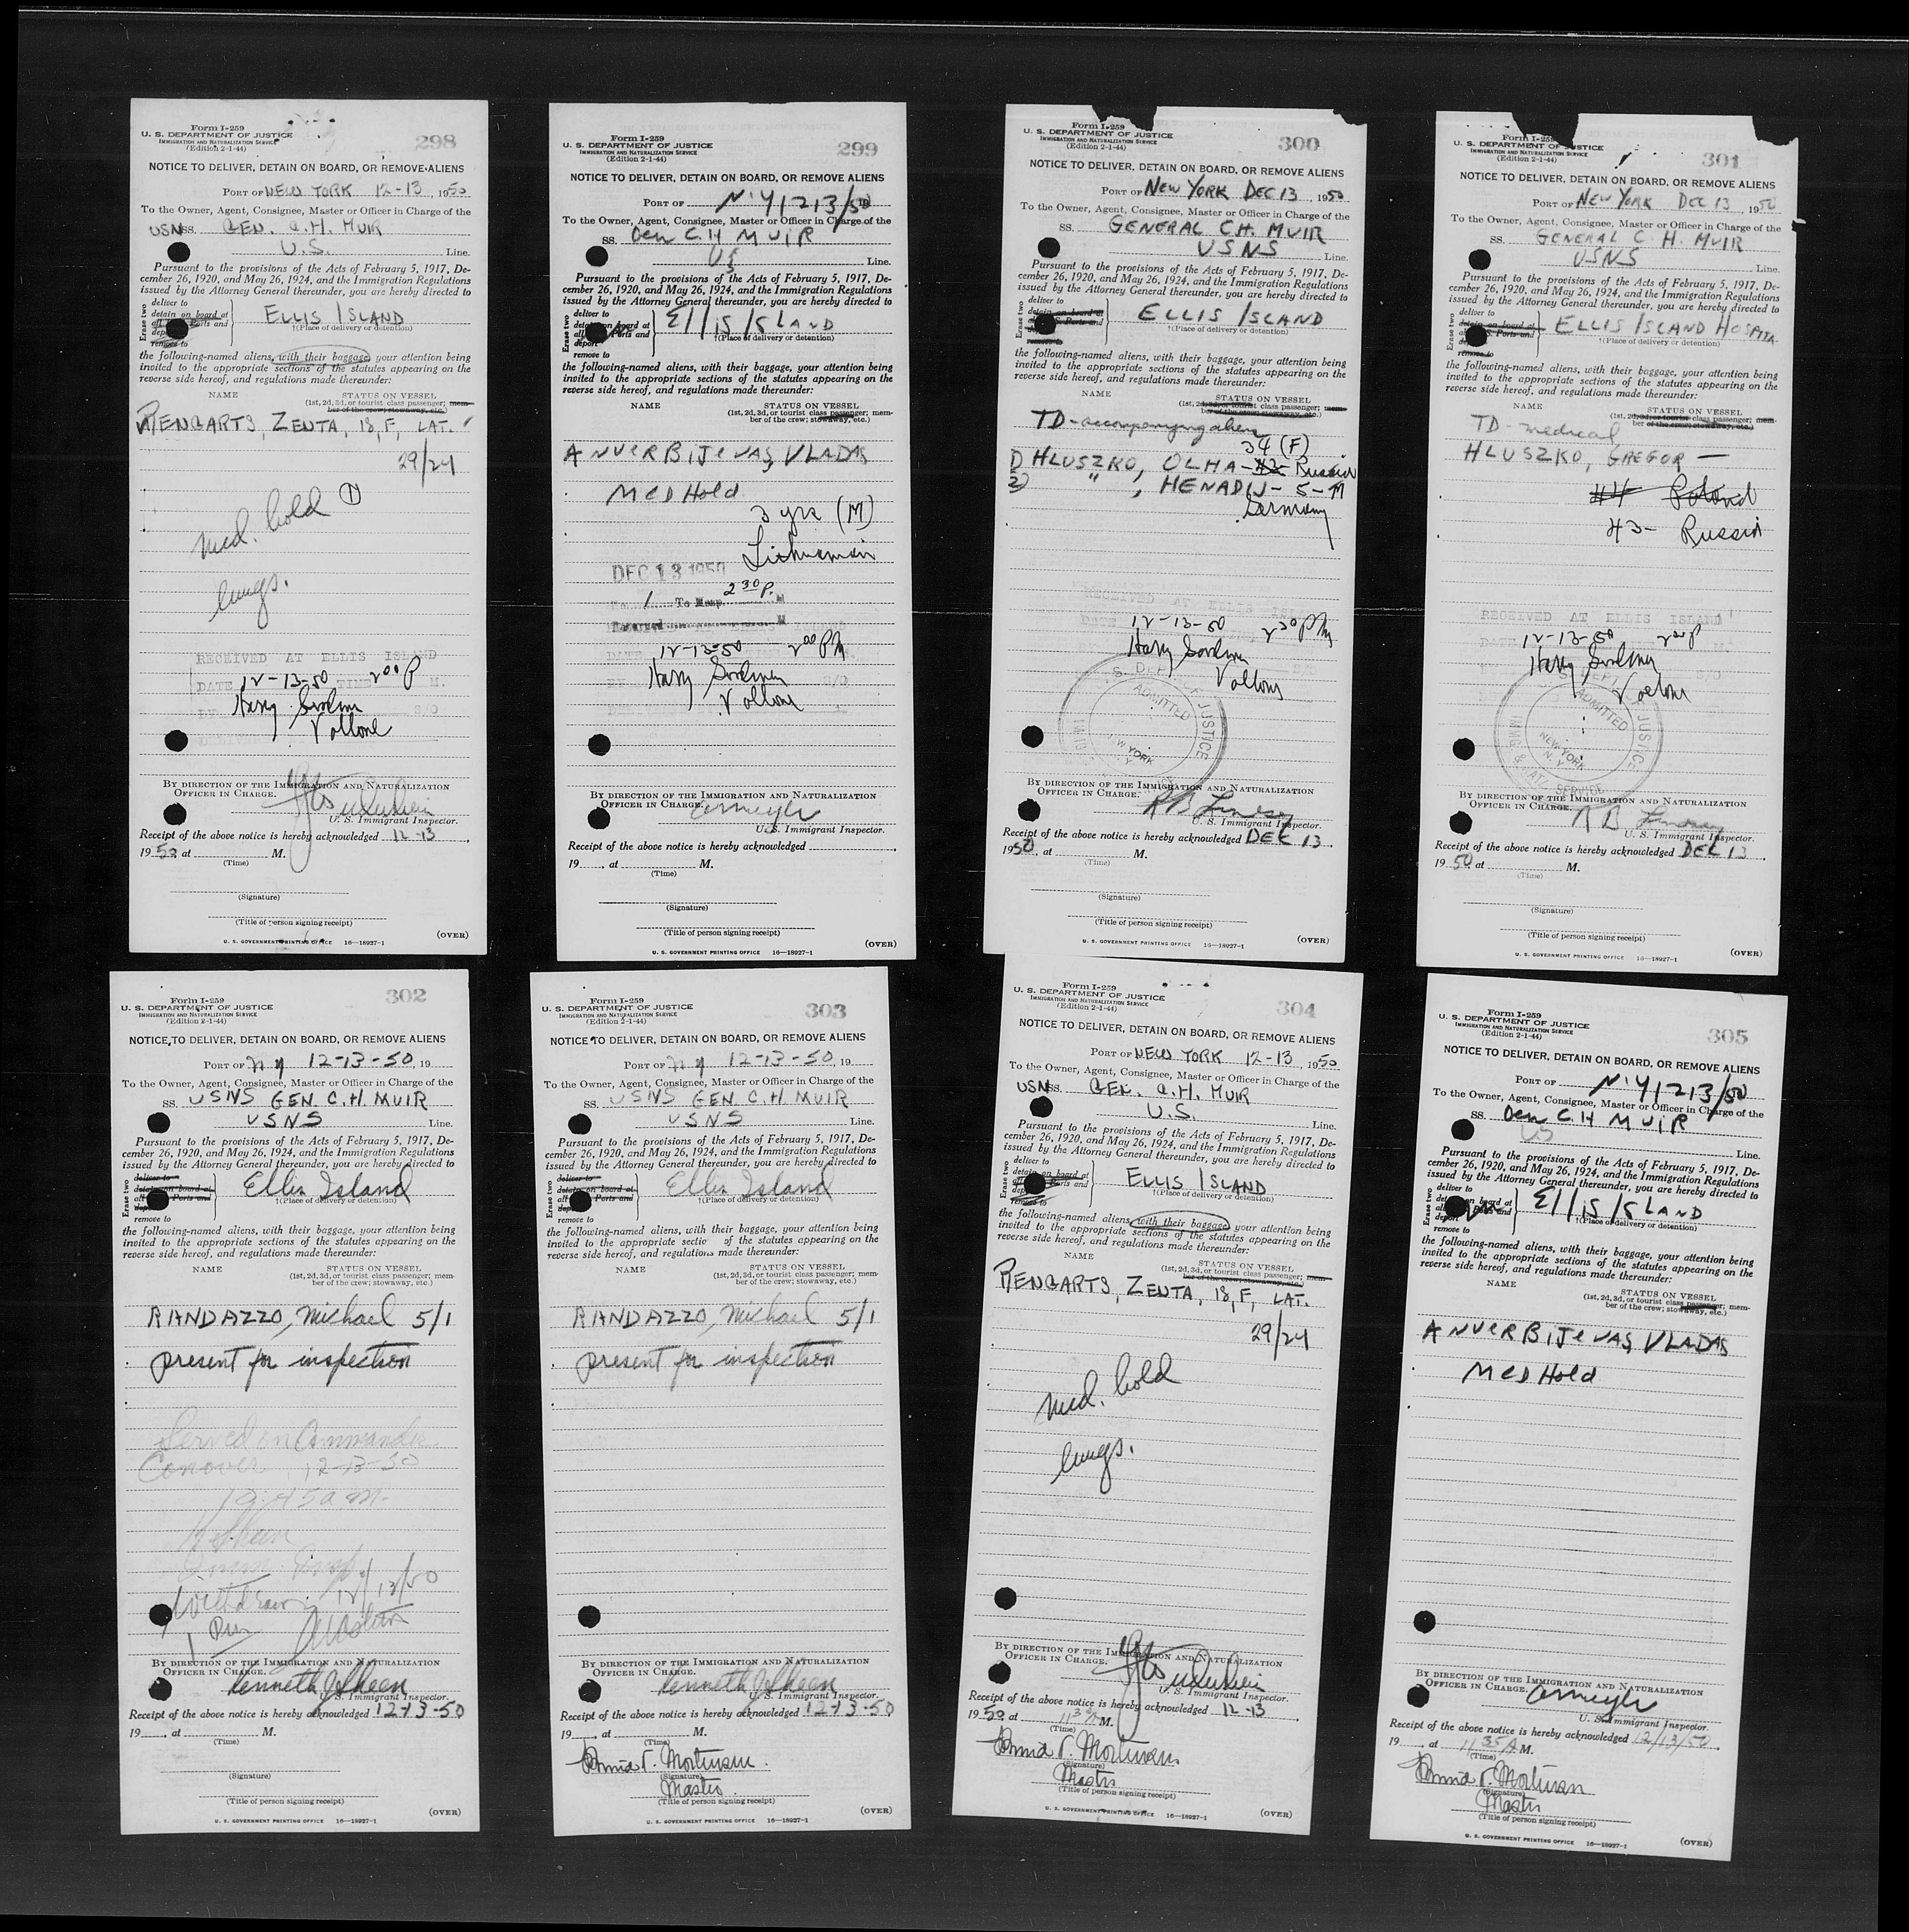 Form I-259
U. S. DEPARTMENT OF JUSTICE
IMMIGRATION AND NATURALIZATION SERVICE
(Edition 2-1-44)
298
NOTICE TO DELIVER, DETAIN ON BOARD, OR REMOVE ALIENS
PORT OF NEW YORK 12-13, 1950
To the Owner, Agent, Consignee, Master or Officer in Charge of the
USNSS. GEN. C.H. MUIR
U.S. Line.
Pursuant to the provisions of the Acts of February 5, 1917, De-
cember 26, 1920, and May 26, 1924, and the Immigration Regulations
issued by the Attorney General thereunder, you are hereby directed to
Erase two
deliver to
detain on board at
all Ports and
remove to
ELLIS ISLAND
†(Place of delivery or detention)
the following-named aliens, with their baggage, your attention being
invited to the appropriate sections of the statutes appearing on the
reverse side hereof, and regulations made thereunder:
NAME STATUS ON VESSEL
(1st, 2d, 3d, or tourist class passenger; mem-
ber of the crew; stowaway, etc.)
RENGARTS, ZENTA, 18, F, LAT.
29/24
med. hold ①
lungs.
RECEIVED AT ELLIS ISLAND
DATE 12-13-50 TIME 2 00 P M.
Harry
Vallone
BY DIRECTION OF THE IMMIGRATION AND NATURALIZATION
OFFICER IN CHARGE.
U. S. Immigrant Inspector.
Receipt of the above notice is hereby acknowledged 12-13,
1950 at M.
(Time)
(Signature)
(Title of person signing receipt)
(OVER)
U. S. GOVERNMENT PRINTING OFFICE 16—18927-1
Form I-259
U. S. DEPARTMENT OF JUSTICE
IMMIGRATION AND NATURALIZATION SERVICE
(Edition 2-1-44)
299
NOTICE TO DELIVER, DETAIN ON BOARD, OR REMOVE ALIENS
PORT OF N.Y 12 13/50
To the Owner, Agent, Consignee, Master or Officer in Charge of the
SS. Gen C.H MUIR
US Line.
Pursuant to the provisions of the Acts of February 5, 1917, De-
cember 26, 1920, and May 26, 1924, and the Immigration Regulations
issued by the Attorney General thereunder, you are hereby directed to
Erase two
deliver to
detain on board at
all Ports and
deport
remove to
Ellis Island
†(Place of delivery or detention)
the following-named aliens, with their baggage, your attention being
invited to the appropriate sections of the statutes appearing on the
reverse side hereof, and regulations made thereunder:
NAME STATUS ON VESSEL
(1st, 2d, 3d, or tourist class passenger; mem-
ber of the crew; stowaway, etc.)
ANVERBIJEVAS, VLADAS
MED Hold
3 yrs (M)
Lithuanian
DEC 13 1950
1 To Hosp. 2 30 P. M
DATE 12-13-50 2 00 PM
Harry
Vallone
BY DIRECTION OF THE IMMIGRATION AND NATURALIZATION
OFFICER IN CHARGE.
U. S. Immigrant Inspector.
Receipt of the above notice is hereby acknowledged
19, at M.
(Time)
(Signature)
(Title of person signing receipt)
(OVER)
U. S. GOVERNMENT PRINTING OFFICE 16—18927-1
Form I-259
U. S. DEPARTMENT OF JUSTICE
IMMIGRATION AND NATURALIZATION SERVICE
(Edition 2-1-44)
300
NOTICE TO DELIVER, DETAIN ON BOARD, OR REMOVE ALIENS
PORT OF NEW YORK DEC 13, 1950
To the Owner, Agent, Consignee, Master or Officer in Charge of the
SS. GENERAL C.H. MUIR
USNS Line.
Pursuant to the provisions of the Acts of February 5, 1917, De-
cember 26, 1920, and May 26, 1924, and the Immigration Regulations
issued by the Attorney General thereunder, you are hereby directed to
Erase two
deliver to
detain on board at
Ports and
remove to
ELLIS ISLAND
†(Place of delivery or detention)
the following-named aliens, with their baggage, your attention being
invited to the appropriate sections of the statutes appearing on the
reverse side hereof, and regulations made thereunder:
NAME STATUS ON VESSEL
(1st, 2d, 3d, or tourist class passenger; mem-
ber of the crew; stowaway, etc.)
TD - accompanying alien
34 (F)
1) HLUSZKO, OLHA - Russia
2) " , HENADIJ - 5 - M
Germany
RECEIVED AT ELLIS ISLAND
DATE 12-13-50 2 30 PM
Harry
Vallone
U.S. DEPT. OF JUSTICE
ADMITTED
NEW YORK
N. Y.
IMMIG. & NAT. SERVICE
BY DIRECTION OF THE IMMIGRATION AND NATURALIZATION
OFFICER IN CHARGE. R B Lindsay
U. S. Immigrant Inspector.
Receipt of the above notice is hereby acknowledged DEC 13,
1950, at M.
(Time)
(Signature)
(Title of person signing receipt)
(OVER)
U. S. GOVERNMENT PRINTING OFFICE 16—18927-1
Form I-259
U. S. DEPARTMENT OF JUSTICE
IMMIGRATION AND NATURALIZATION SERVICE
(Edition 2-1-44)
301
NOTICE TO DELIVER, DETAIN ON BOARD, OR REMOVE ALIENS
PORT OF NEW YORK DEC 13, 1950
To the Owner, Agent, Consignee, Master or Officer in Charge of the
SS. GENERAL C. H. MUIR
USNS Line.
Pursuant to the provisions of the Acts of February 5, 1917, De-
cember 26, 1920, and May 26, 1924, and the Immigration Regulations
issued by the Attorney General thereunder, you are hereby directed to
Erase two
deliver to
detain on board at
Ports and
remove to
ELLIS ISLAND HOSPITA
†(Place of delivery or detention)
the following-named aliens, with their baggage, your attention being
invited to the appropriate sections of the statutes appearing on the
reverse side hereof, and regulations made thereunder:
NAME STATUS ON VESSEL
(1st, 2d, 3d, or tourist class passenger; mem-
ber of the crew; stowaway, etc.)
TD - medical
HLUSZKO, GREGOR —
44 Poland
43 - Russia
RECEIVED AT ELLIS ISLAND
DATE 12-13-50 2 30 P
Harry
Vallone
U.S. DEPT. OF JUSTICE
ADMITTED
NEW YORK
N. Y.
IMMIG. & NAT. SERVICE
BY DIRECTION OF THE IMMIGRATION AND NATURALIZATION
OFFICER IN CHARGE. R B Lindsay
U. S. Immigrant Inspector.
Receipt of the above notice is hereby acknowledged DEC 13,
1950 at M.
(Time)
(Signature)
(Title of person signing receipt)
(OVER)
U. S. GOVERNMENT PRINTING OFFICE 16—18927-1
Form I-259
U. S. DEPARTMENT OF JUSTICE
IMMIGRATION AND NATURALIZATION SERVICE
(Edition 2-1-44)
302
NOTICE TO DELIVER, DETAIN ON BOARD, OR REMOVE ALIENS
PORT OF N Y 12-13-50, 19
To the Owner, Agent, Consignee, Master or Officer in Charge of the
SS. USNS GEN. C.H. MUIR
USNS Line.
Pursuant to the provisions of the Acts of February 5, 1917, De-
cember 26, 1920, and May 26, 1924, and the Immigration Regulations
issued by the Attorney General thereunder, you are hereby directed to
Erase two
deliver to
detain on board at
all Ports and
remove to
Ellis Island
†(Place of delivery or detention)
the following-named aliens, with their baggage, your attention being
invited to the appropriate sections of the statutes appearing on the
reverse side hereof, and regulations made thereunder:
NAME STATUS ON VESSEL
(1st, 2d, 3d, or tourist class passenger; mem-
ber of the crew; stowaway, etc.)
RANDAZZO, Michael 5/1
present for inspection
Served on Commander
Conover 12-13-50
10:45 a m.
K Sheen
Imm. Insp.
Withdrawn 12/13/50
BY DIRECTION OF THE IMMIGRATION AND NATURALIZATION
OFFICER IN CHARGE. Kenneth J Sheen
U. S. Immigrant Inspector.
Receipt of the above notice is hereby acknowledged 12-13-50
19, at M.
(Time)
(Signature)
(Title of person signing receipt)
(OVER)
U. S. GOVERNMENT PRINTING OFFICE 16—18927-1
Form I-259
U. S. DEPARTMENT OF JUSTICE
IMMIGRATION AND NATURALIZATION SERVICE
(Edition 2-1-44)
303
NOTICE TO DELIVER, DETAIN ON BOARD, OR REMOVE ALIENS
PORT OF N Y 12-13-50, 19
To the Owner, Agent, Consignee, Master or Officer in Charge of the
SS. USNS GEN. C.H. MUIR
USNS Line.
Pursuant to the provisions of the Acts of February 5, 1917, De-
cember 26, 1920, and May 26, 1924, and the Immigration Regulations
issued by the Attorney General thereunder, you are hereby directed to
Erase two
deliver to
detain on board at
all Ports and
remove to
Ellis Island
†(Place of delivery or detention)
the following-named aliens, with their baggage, your attention being
invited to the appropriate sectio of the statutes appearing on the
reverse side hereof, and regulations made thereunder:
NAME STATUS ON VESSEL
(1st, 2d, 3d, or tourist class passenger; mem-
ber of the crew; stowaway, etc.)
RANDAZZO, Michael 5/1
present for inspection
BY DIRECTION OF THE IMMIGRATION AND NATURALIZATION
OFFICER IN CHARGE. Kenneth J Sheen
U. S. Immigrant Inspector.
Receipt of the above notice is hereby acknowledged 12-13-50
19, at M.
(Time)
Mortensen.
(Signature)
Master.
(Title of person signing receipt)
(OVER)
U. S. GOVERNMENT PRINTING OFFICE 16—18927-1
Form I-259
U. S. DEPARTMENT OF JUSTICE
IMMIGRATION AND NATURALIZATION SERVICE
(Edition 2-1-44)
304
NOTICE TO DELIVER, DETAIN ON BOARD, OR REMOVE ALIENS
PORT OF NEW YORK 12-13, 1950
To the Owner, Agent, Consignee, Master or Officer in Charge of the
USNSS. GEN. C.H. MUIR
U.S. Line.
Pursuant to the provisions of the Acts of February 5, 1917, De-
cember 26, 1920, and May 26, 1924, and the Immigration Regulations
issued by the Attorney General thereunder, you are hereby directed to
Erase two
deliver to
detain on board at
all Ports and
remove to
ELLIS ISLAND
†(Place of delivery or detention)
the following-named aliens, with their baggage, your attention being
invited to the appropriate sections of the statutes appearing on the
reverse side hereof, and regulations made thereunder:
NAME
STATUS ON VESSEL
(1st, 2d, 3d, or tourist class passenger; mem-
ber of the crew; stowaway, etc.)
RENGARTS, ZENTA, 18, F, LAT.
29/24
med. hold
lungs.
BY DIRECTION OF THE IMMIGRATION AND NATURALIZATION
OFFICER IN CHARGE.
U. S. Immigrant Inspector.
Receipt of the above notice is hereby acknowledged 12-13,
1950 at 11 35 A M.
(Time)
Mortensen.
(Signature)
Master
(Title of person signing receipt)
(OVER)
U. S. GOVERNMENT PRINTING OFFICE 16—18927-1
Form I-259
U. S. DEPARTMENT OF JUSTICE
IMMIGRATION AND NATURALIZATION SERVICE
(Edition 2-1-44)
305
NOTICE TO DELIVER, DETAIN ON BOARD, OR REMOVE ALIENS
PORT OF N.Y 12 13/50
To the Owner, Agent, Consignee, Master or Officer in Charge of the
SS. Gen C.H MUIR
US Line.
Pursuant to the provisions of the Acts of February 5, 1917, De-
cember 26, 1920, and May 26, 1924, and the Immigration Regulations
issued by the Attorney General thereunder, you are hereby directed to
Erase two
deliver to
detain on board at
all Ports and
deport
remove to
Ellis Island
†(Place of delivery or detention)
the following-named aliens, with their baggage, your attention being
invited to the appropriate sections of the statutes appearing on the
reverse side hereof, and regulations made thereunder:
NAME
STATUS ON VESSEL
(1st, 2d, 3d, or tourist class passenger; mem-
ber of the crew; stowaway, etc.)
ANVERBIJEVAS, VLADAS
MED Hold
BY DIRECTION OF THE IMMIGRATION AND NATURALIZATION
OFFICER IN CHARGE.
U. S. Immigrant Inspector.
Receipt of the above notice is hereby acknowledged 12/13/50,
19, at 11 35 A M.
(Time)
Mortensen
(Signature)
Master
(Title of person signing receipt)
(OVER)
U. S. GOVERNMENT PRINTING OFFICE 16—18927-1